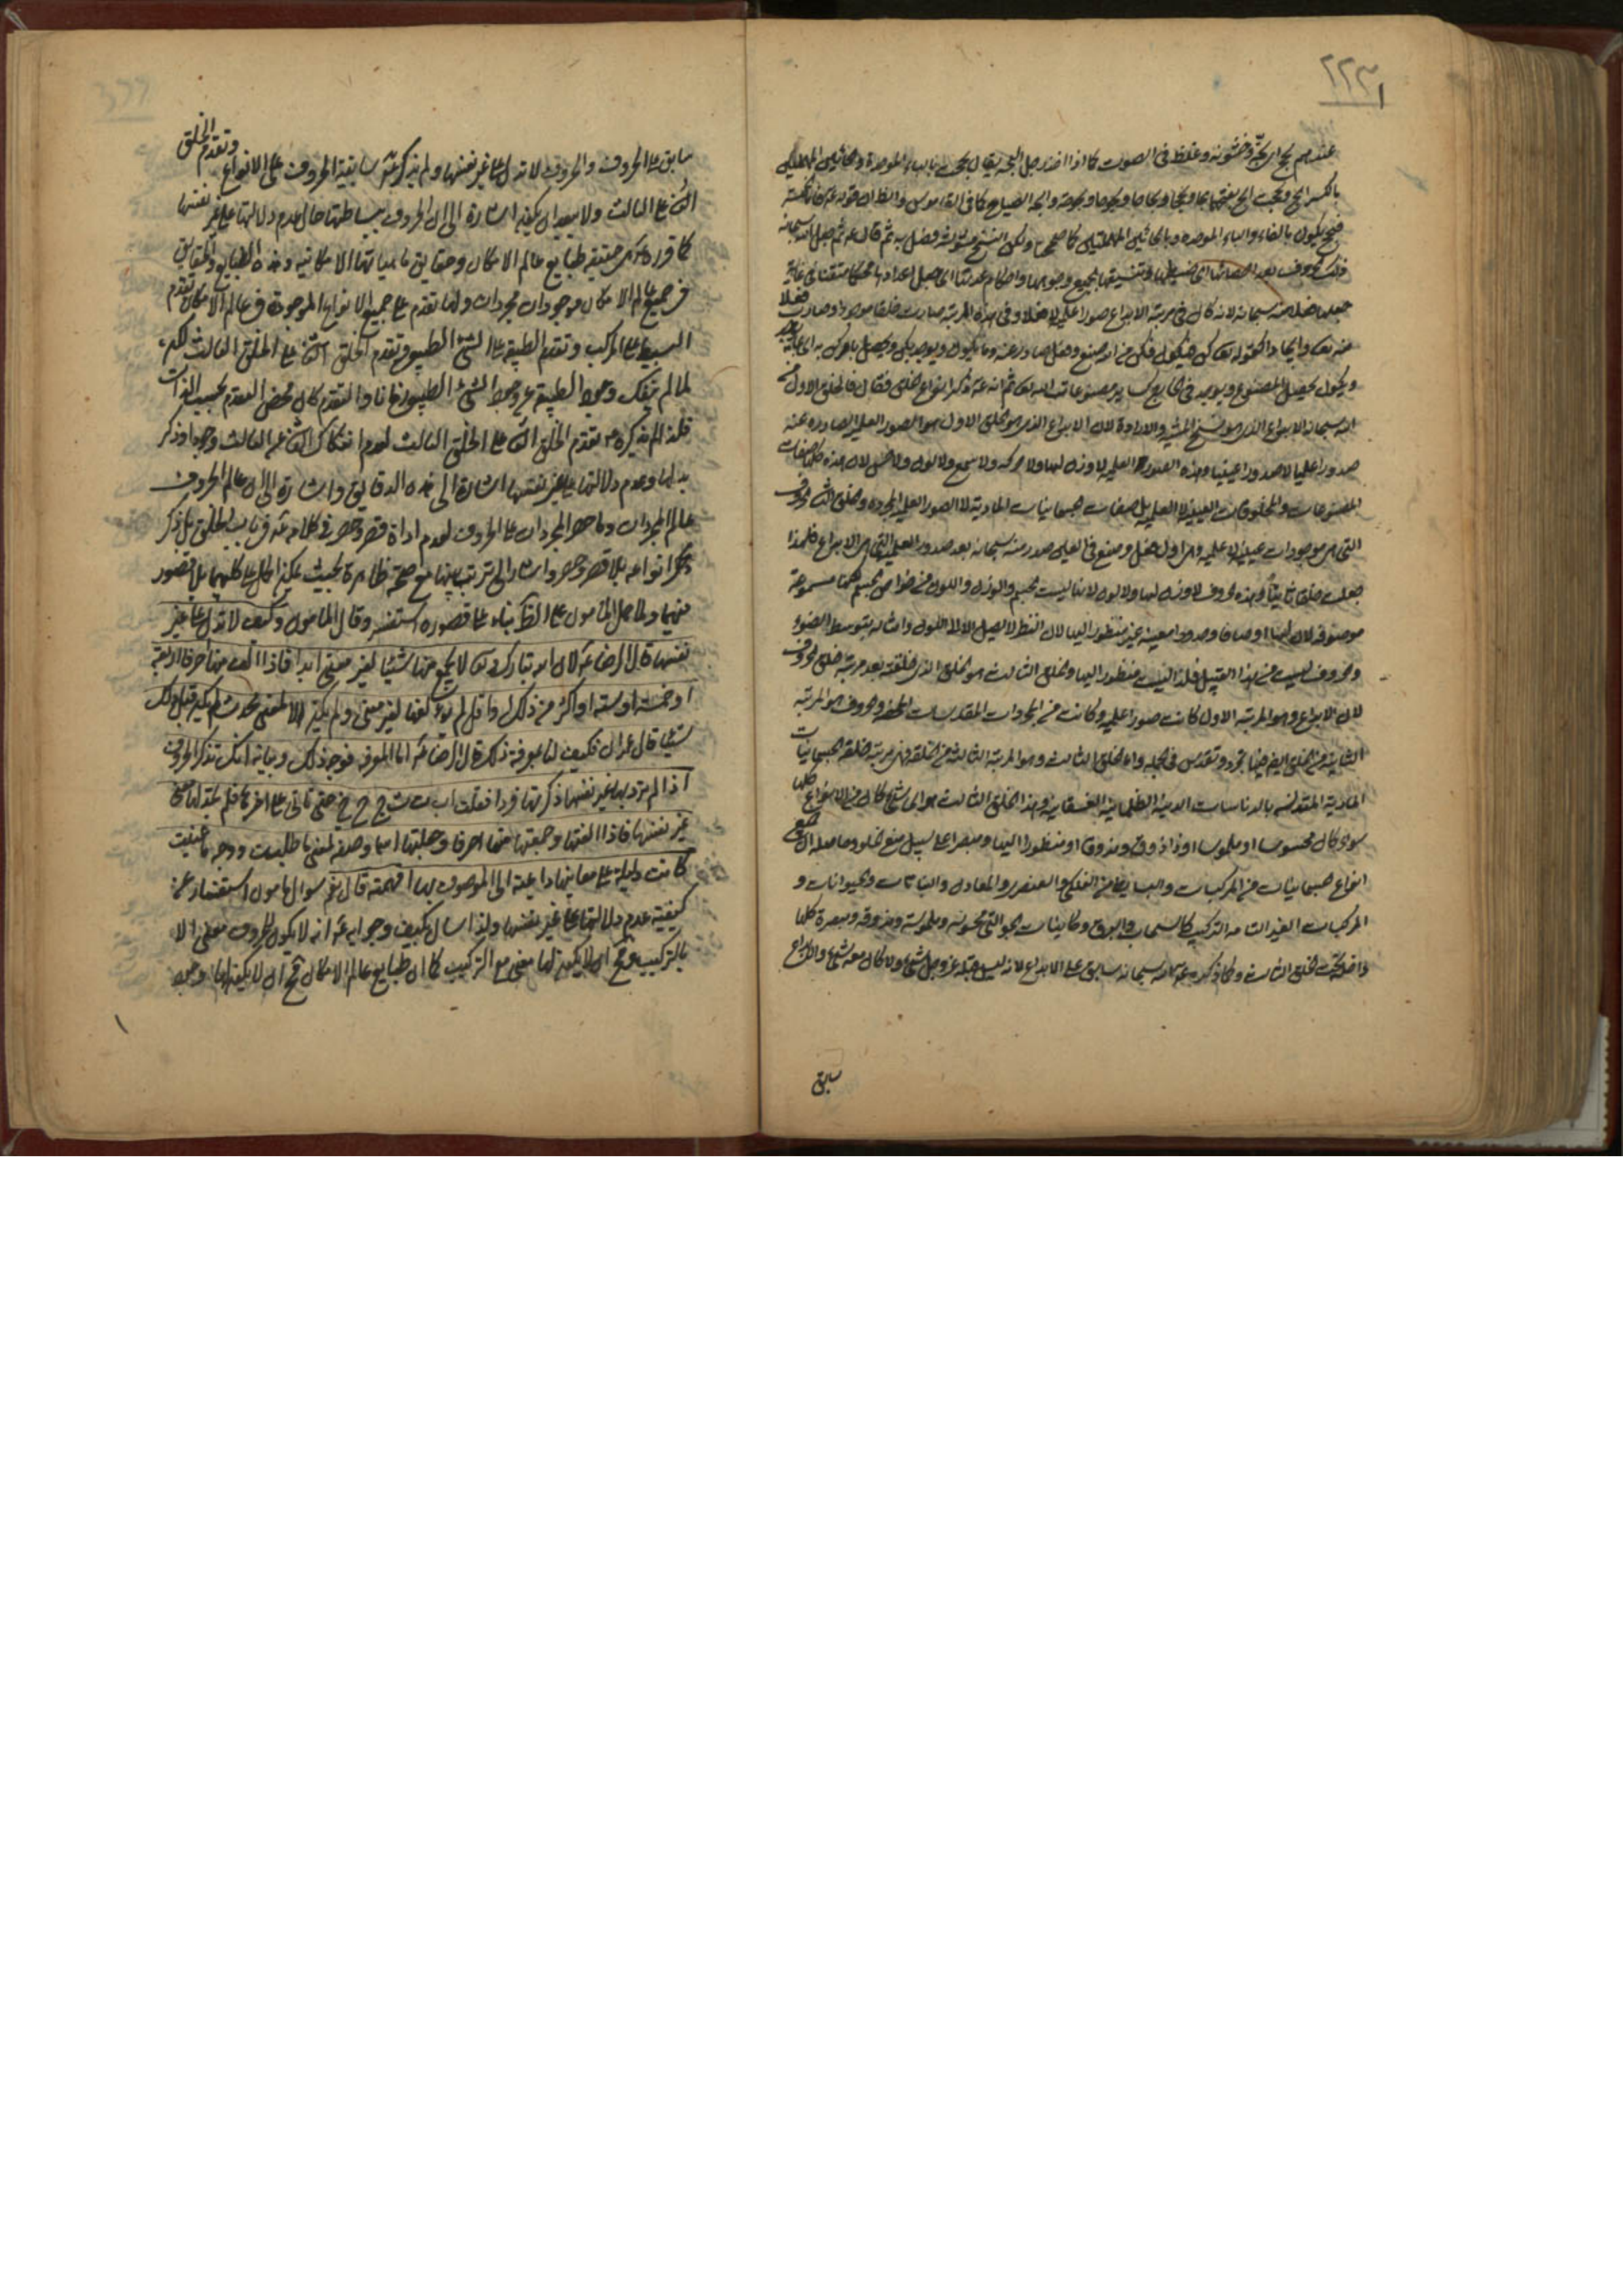 ۲۲۳
عندهم بح اى بحّة وخشونة وغلظ فى الصوت كما اذا اخذ رجل البحة يقال بحت بالباء الموحدة والحائين المهملتين
بالكسر ابح وبححت ابح بفتحهما بحا وبححا وبحاحا وبحوحا وبحوحة وابحه الصياح كما فى القاموس والظاهر ان قوله
فبح يكون بالفاء والباء الموحدة وبالحائين المهملتين كما صححها ولكن النسخ مشوشة وفصل به ثم قال ع ثم جعل الله سبحانه
تلك الحروف بعد احصائها اى ضبطها وتنسيقها بجميع وجوهها واحكام عدتها اى جعل اعدادها محكما متقنا فى غاية
جعلها فعلا منه سبحانه لانه كان فى مرتبة الابداع صورا علمية لا فعلا وفى هذه المرتبة صارت خلقا موجودا وصارت فعلا
منه تعالى وايجادا كقوله تعالى كن فيكون فكن منه صنع وفعل صادر عنه وما يكون ويوجد بكن
ويكون يحصل المصنوع ويوجد فى الخارج كساير مصنوعات الله تعالى ثم انه ع ذكر انواع خلق فقال فالخلق الاول من
الله سبحانه الابداع الذى هو نسخ المشية والارادة لان الابداع الذى هو الخلق الاول هو الصور العلمية الصادرة عنه
صدورا علميا لا صدورا عينيا وهذه الصور العلمية لا وزن لها ولا حركة ولا سمع ولا لون ولا حس لان هذه كلها صفات
المصنوعات والمخلوقات العينية لا العلمية بل صفات جسمانيات المادية لا الصور العلمية المجردة وخلق الثانى الحروف
التى هى موجودات عينية لا علمية وهى اول فعل وصنع فى العلى صدر منه سبحانه بعد صدور العلمية التى هى الابداع فلهذا
جعلت خلقا ثانيا وهذه الحروف لا وزن لها ولا لون لانها ليست بجسم والوزن واللون من خواص الجسم لكنها مسموعة
موصوفة لان لها اوصافا وحدودا معينة غير منظور اليها لان النظر لا يصل الا الى اللون وامثاله بتوسط الضوء
والحروف ليست من هذا القبيل فلذا ليست منظور اليها والخلق الثالث هو الخلق الذى خلقه بعد مرتبة خلق الحروف
لان الابداع وهو المرتبة الاول كانت صورا علمية وكانت من المجردات المقدسات المحضة والحروف هو المرتبة
الثانية من الخلق ايضا فيها تجرد وتقدس فى الجملة واما الخلق الثالث وهو المرتبة الثالثة من الخلقة وهى مرتبة خلقة الجسمانيات
المادية المتقدسة بالادناسات الدنية الظلمانية الغسقانية وهذا الخلق الثالث هو اى شئ كان من الانواع كلها
سواء كان محسوسا او ملموسا او ذا ذوق ومذوقا او منظورا اليها ومبصرا
انواع جسمانيات من المركبات والبسايط من الفلكى والعنصرى والمعادن والنباتات والحيوانات و
المركبات الغير التامة التركيب كالسحاب والبرق وكاينات الجو التى محسوسة وملموسة ومذوقة ومبصرة كلها
داخلة تحت الخلق الثالث ولما ذكره ع الله سبحانه سابق على الابداع لانه ليس قبله عز وجل شئ ولا كان معه شئ والابداع
سابق
وتقدم الخلق
سابق على الحروف والحروف لا تدل على غير نفسها ولم يذكر ع سابقية الحروف على الانواع
الثانى على الثالث ولا يبعد ان يكون اشارة الى ان الحروف ببساطتها حال عدم دلالتها على غير نفسها
كما قرره ع هى حقيقة طبايع عالم الامكان وحقايق ماهياتها الامكانية وهذه الطبايع والحقايق
فى جميع عالم الامكان موجودات مجردات ولها تقدم على جميع الانواع الموجودة فى عالم الامكان تقدم
البسيط على المركب وتقدم الطبيعة على الشئ الطبيعى وتقدم الخلق الثانى على الخلق الثالث لكنه
لما لم ينفك وجود الطبيعة عن وجود الشئ الطبيعى زمانا والتقدم كان محض التقدم بحسب الذات
فلذا لم يذكره ع تقدم الخلق الثانى على الخلق الثالث لعدم انفكاك الثانى عن الثالث وجودا وذكر
بدلها وعدم دلالتها على غير نفسها اشارة الى هذه الدقايق واشارة الى ان عالم الحروف
عالم المجردات وما حصر المجردات على الحروف لعدم اداة قصر وحصر فى كلامه ع فى باب الخلق بل ذكر
ذكر انواعه بلا قصر وحصر واشار الى ترتيب بينها مع صحة ظاهره بحيث يمكن الحمل على كليهما بلا قصور
فيهما ولما حمل المأمون على الظاهر بناء على قصوره استفسر وقال المأمون وكيف لا تدل على غير
نفسها قال الرضا ع لان الله تبارك وتعالى لا يجمع منها شيئا لغير معنى ابدا فاذا الف منها احرفا اربعة
او خمسة او ستة او اكثر من ذلك او اقل لم يؤلفها لغير معنى ولم يكن الا لمعنى محدث لم يكن قبل ذلك
شيئا قال عمران فكيف لنا بمعرفة ذلك قال الرضا ع اما المعرفة فوجه ذلك وبيانه انك تذكر الحروف
اذا لم ترد بها غير نفسها ذكرتها فردا فقلت ا ب ت ث ج ح خ حتى تأتى على آخرها فلم تجد لها معنى
غير نفسها فاذا الفتها وجمعتها منها احرفا وجعلتها اسما وصفة لمعنى ما طلبت ووجه ما عنيت
كانت دليلة على معانيها داعية الى الموصوف بها افهمته قال نعم سؤال مأمون استفسار عن
كيفية عدم دلالتها على غير نفسها ولذا سال بكيف وجوابه ع انه لا يكون للحروف معنى الا
بالتركيب ومع ان لا يكون لها معنى مع التركيب كما ان طبايع عالم الامكان مع ان لا يكون لها وجود